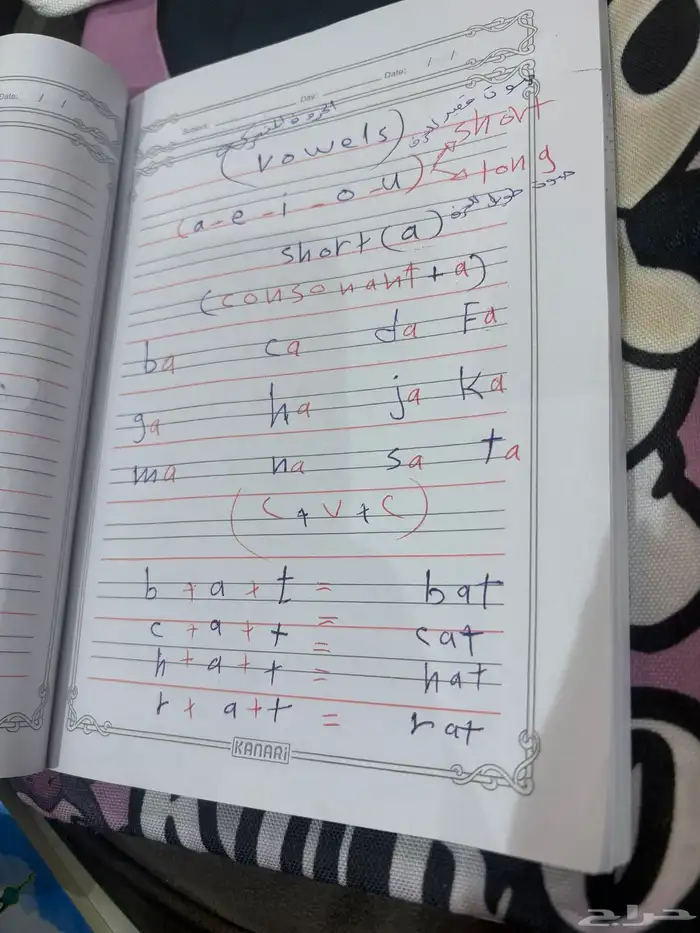 Date: / /
Subject: Day: Date: / /
الحروف المتحركة
(vowels)
short
(a-e-i-o-u)
long
short (a)
(consonant + a)
ba ca da Fa
ga ha ja Ka
ma na sa ta
(C + V + C)
b + a + t = bat
c + a + t = cat
h + a + t = hat
r + a + t = rat
KANARI
حراج